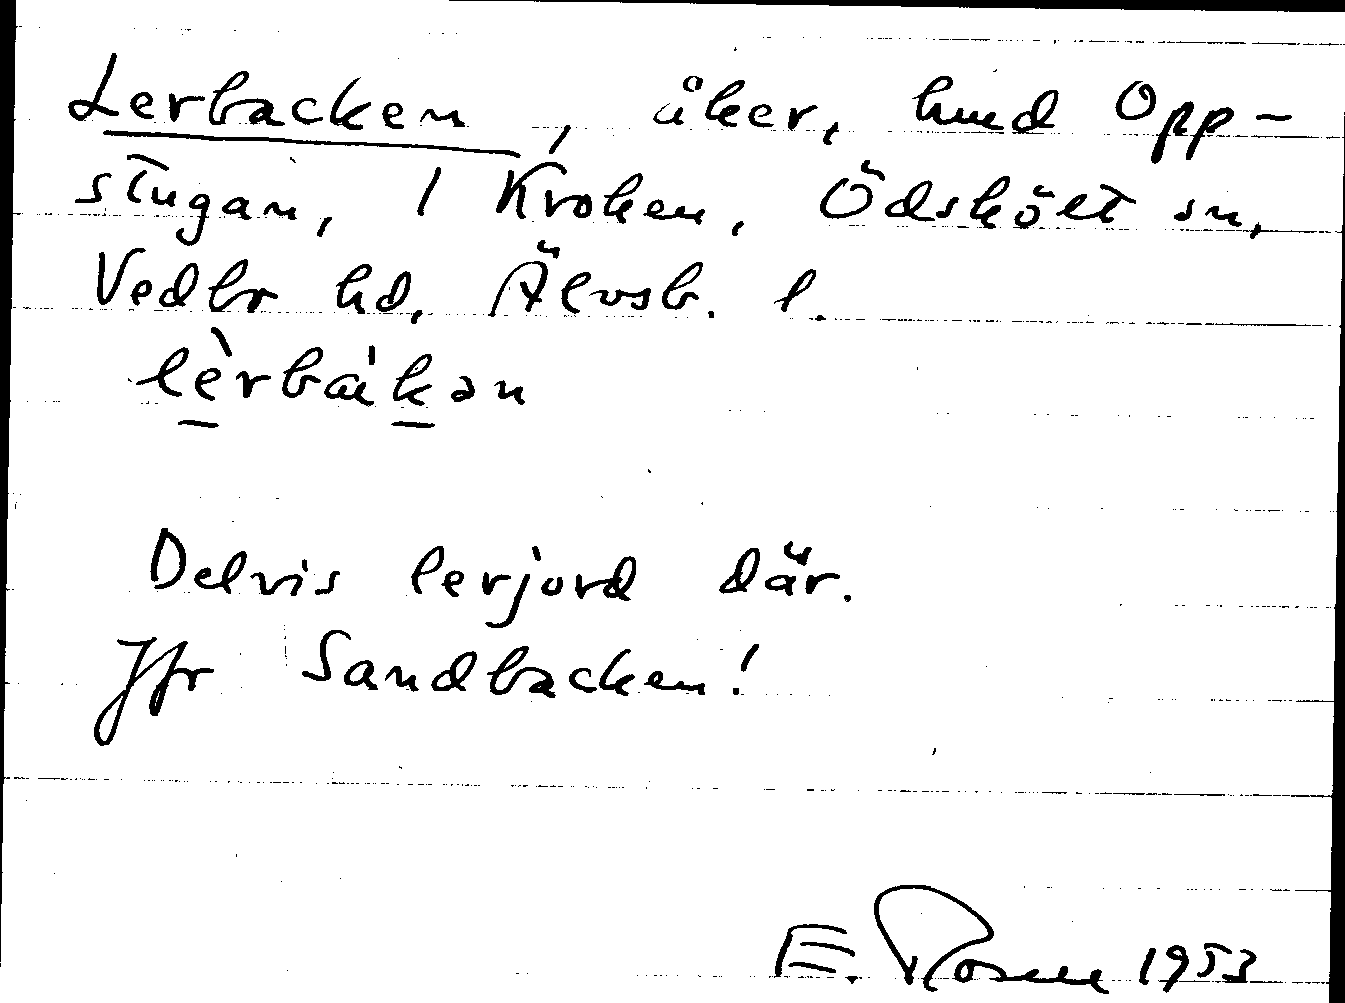 Lerbacken, åker, hmd Opp-
stugan, 1 Kroken, Ödskölt sn,
Vedbo hd, Älvsb. l.
lèrbákən
Delvis lerjord där.
Jfr Sandbacken!
E. Rosen 1953